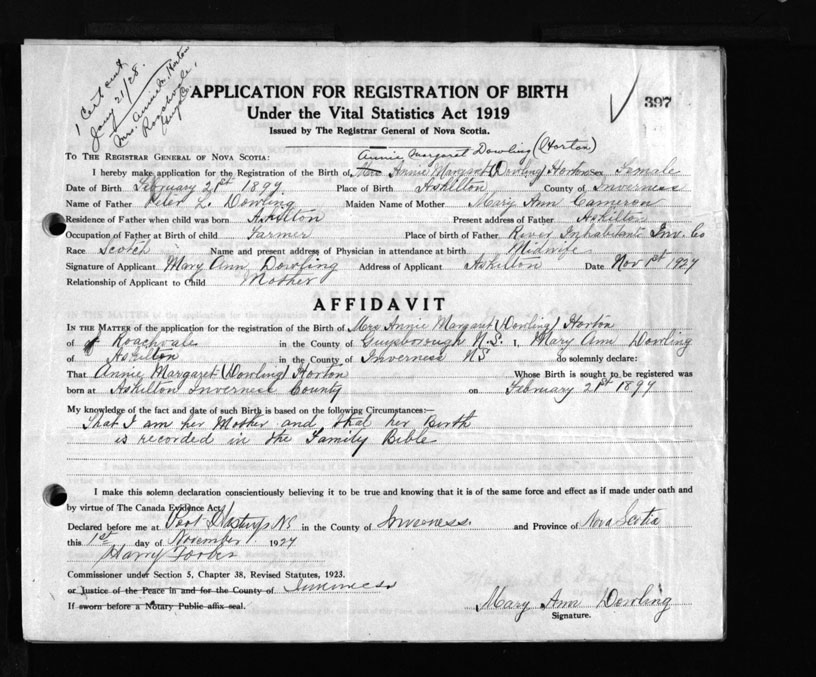 1 Cert sent
Jany 21/28.
Mrs. Annie M. Horton
Roachvale,
Guys Co.
397
APPLICATION FOR REGISTRATION OF BIRTH
Under the Vital Statistics Act 1919
Issued by The Registrar General of Nova Scotia.
Annie Margaret Dowling (Horton)
TO THE REGISTRAR GENERAL OF NOVA SCOTIA:
I hereby make application for the Registration of Birth of Mrs Annie Margaret (Dowling) Horton Sex Female
Date of Birth February 21st 1899. Place of Birth Askilton County of Inverness
Name of Father Peter L. Dowling Maiden Name of Mother Mary Ann Cameron
Residence of Father when child was born Askilton Present address of Father Askilton
Occupation of Father at Birth of child Farmer Place of birth of Father River Inhabitants Inv. Co
Race Scotch Name and present address of Physician in attendance at birth Midwife
Signature of Applicant Mary Ann Dowling Address of Applicant Askilton Date Nov 1st 1927
Relationship of Applicant to Child Mother
AFFIDAVIT
IN THE MATTER of the application for the registration of the Birth of Mrs Annie Margaret (Dowling) Horton
of Roachvale in the County of Guysborough N.S. I, Mary Ann Dowling
of Askilton in the County of Inverness NS do solemnly declare:
That Annie Margaret (Dowling) Horton Whose Birth is sought to be registered was
born at Askilton Inverness County on February 21st 1899
My knowledge of the fact and date of such Birth is based on the following Circumstances:—
That I am her Mother and that her Birth
is recorded in the Family Bible
I make this solemn declaration conscientiously believing it to be true and knowing that it is of the same force and effect as if made under oath and
by virtue of The Canada Evidence Act.
Declared before me at Port Hastings NS in the County of Inverness. and Province of Nova Scotia
this 1st day of November 1927
Harry Forbes
Commissioner under Section 5, Chapter 38, Revised Statutes, 1923.
or Justice of the Peace in and for the County of Inverness
If sworn before a Notary Public affix seal.
Mary Ann Dowling
Signature.